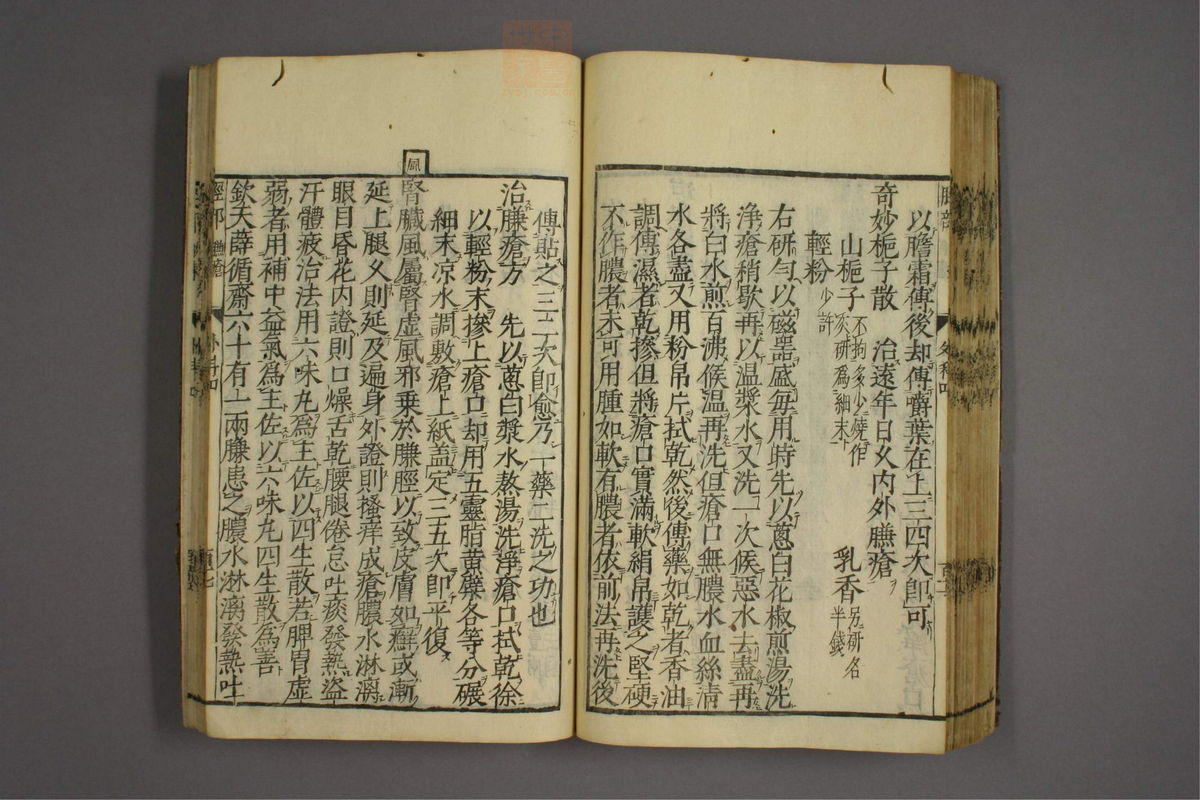 以膽霜傳後却傳嚼葉在上三四次卽可
奇妙梔子散 治遠年日久内外臁瘡
山梔子 不拘多少燒作灰研爲細末 乳香 另研各半錢
輕粉 少許
右研勻以磁噐盛每用時先以葱白花椒煎湯洗
淨瘡稍歇再以温漿水又洗一次候惡水去盡再
將白水煎百沸候温再洗但瘡口無膿水血絲清
水各盡又用粉帛片拭乾然後傳藥如乾者香油
調傳濕者乾摻但將瘡口實滿軟絹帛護之堅硬
不作膿者未可用腫如軟有膿者依前法再洗後
傳貼之三二次卽愈乃一藥二洗之功也
治臁瘡方 先以葱白漿水熬湯洗淨瘡口拭乾徐
以輕粉末摻上瘡口却用五靈脂黄蘗各等分碾
細末凉水調敷瘡上紙盖定三五次卽平復
風
腎臟風屬腎虚風邪乘於臁脛以致皮膚如癬或漸
延上腿久則延及遍身外證則搔痒成瘡膿水淋漓
眼目昏花内證則口燥舌乾腰腿倦怠吐痰發熱盗
汗體疲治法用六味丸爲主佐以四生散若脾胃虚
弱者用補中益氣爲主佐以六味丸四生散爲善
欽天薛循齋六十有一兩臁患之膿水淋漓發熱吐